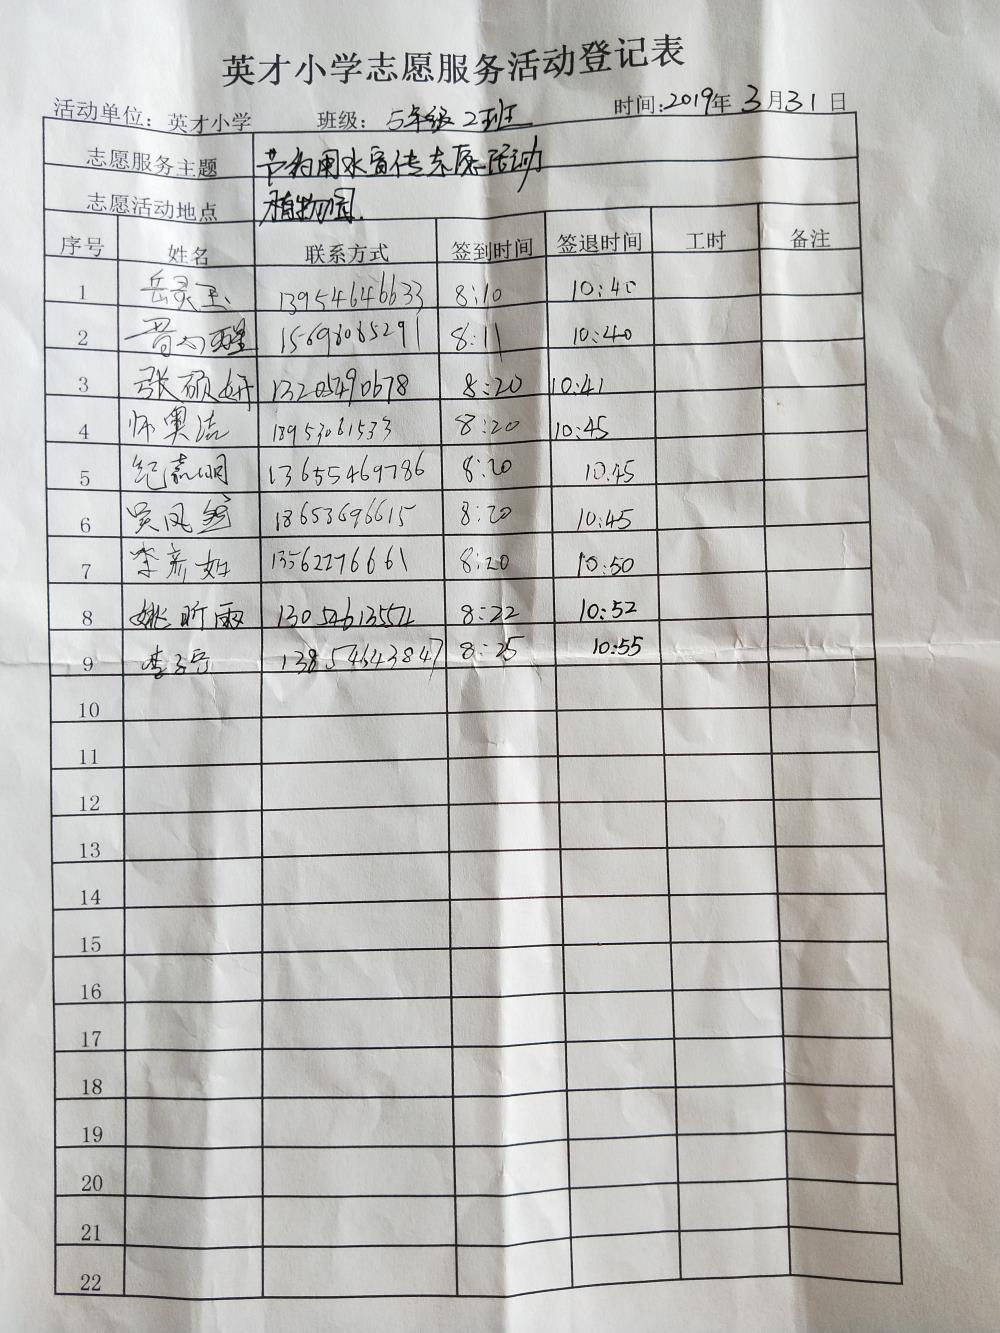 英才小学志愿服务活动登记表
活动单位：英才小学 班级：5年级2班 时间:2019年3月31日
志愿服务主题 节约用水宣传志愿活动
志愿活动地点 植物园
序号 姓名 联系方式 签到时间 签退时间 工时 备注
1 岳灵玉 13954646633 8:10 10:40
2 15698065291 8:11 10:40
3 张硕妍 13205490678 8:20 10:41
4 师奥洁 18953061533 8:20 10:45
5 纪嘉明 13655469786 8:20 10:45
6 吴凤 18653696615 8:20 10:45
7 李彦如 13562276661 8:20 10:50
8 姚昕雨 8:22 10:52
9 李子乐 13854643847 8:25 10:55
10
11
12
13
14
15
16
17
18
19
20
21
22